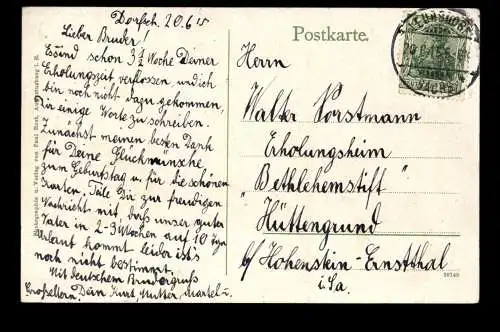 Dorfsch. 20.6.15
Lieber Bruder!
Es sind schon 3½ Woche Deiner
Erholungszeit verflossen, und ich
bin noch nicht dazu gekommen,
Dir einige Worte zu schreiben.
Zunächst meinen besten Dank
für Deine Glückwünsche
zum Geburtstag u. für die schönen
Karten. Teile Dir zur freudigen
Nachricht mit, daß unser guter
Vater in 2-3 Wochen auf 10 täg
Urlaub kommt leider ist's
noch nicht bestimmt.
Mit deutschem Brudergruß
Großeltern. Dein Kurt, Mutter, Martel u.
Postkarte.
Herrn
Walter Vorstmann
Erholungsheim
"Bethlehemstift"
Hüttengrund
b/ Hohenstein-Ernstthal
i. Sa.
Photographie u. Verlag von Paul Heck, Augustusburg i. S.
20.6.15.